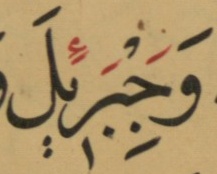 وَجِبْرِيلَ